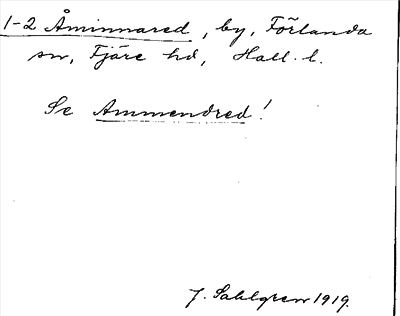 1-2 Åminnared, by, Förlanda
sn, Fjäre hd, Hall. l.
Se Ammendred!
J. Sahlgren 1919.